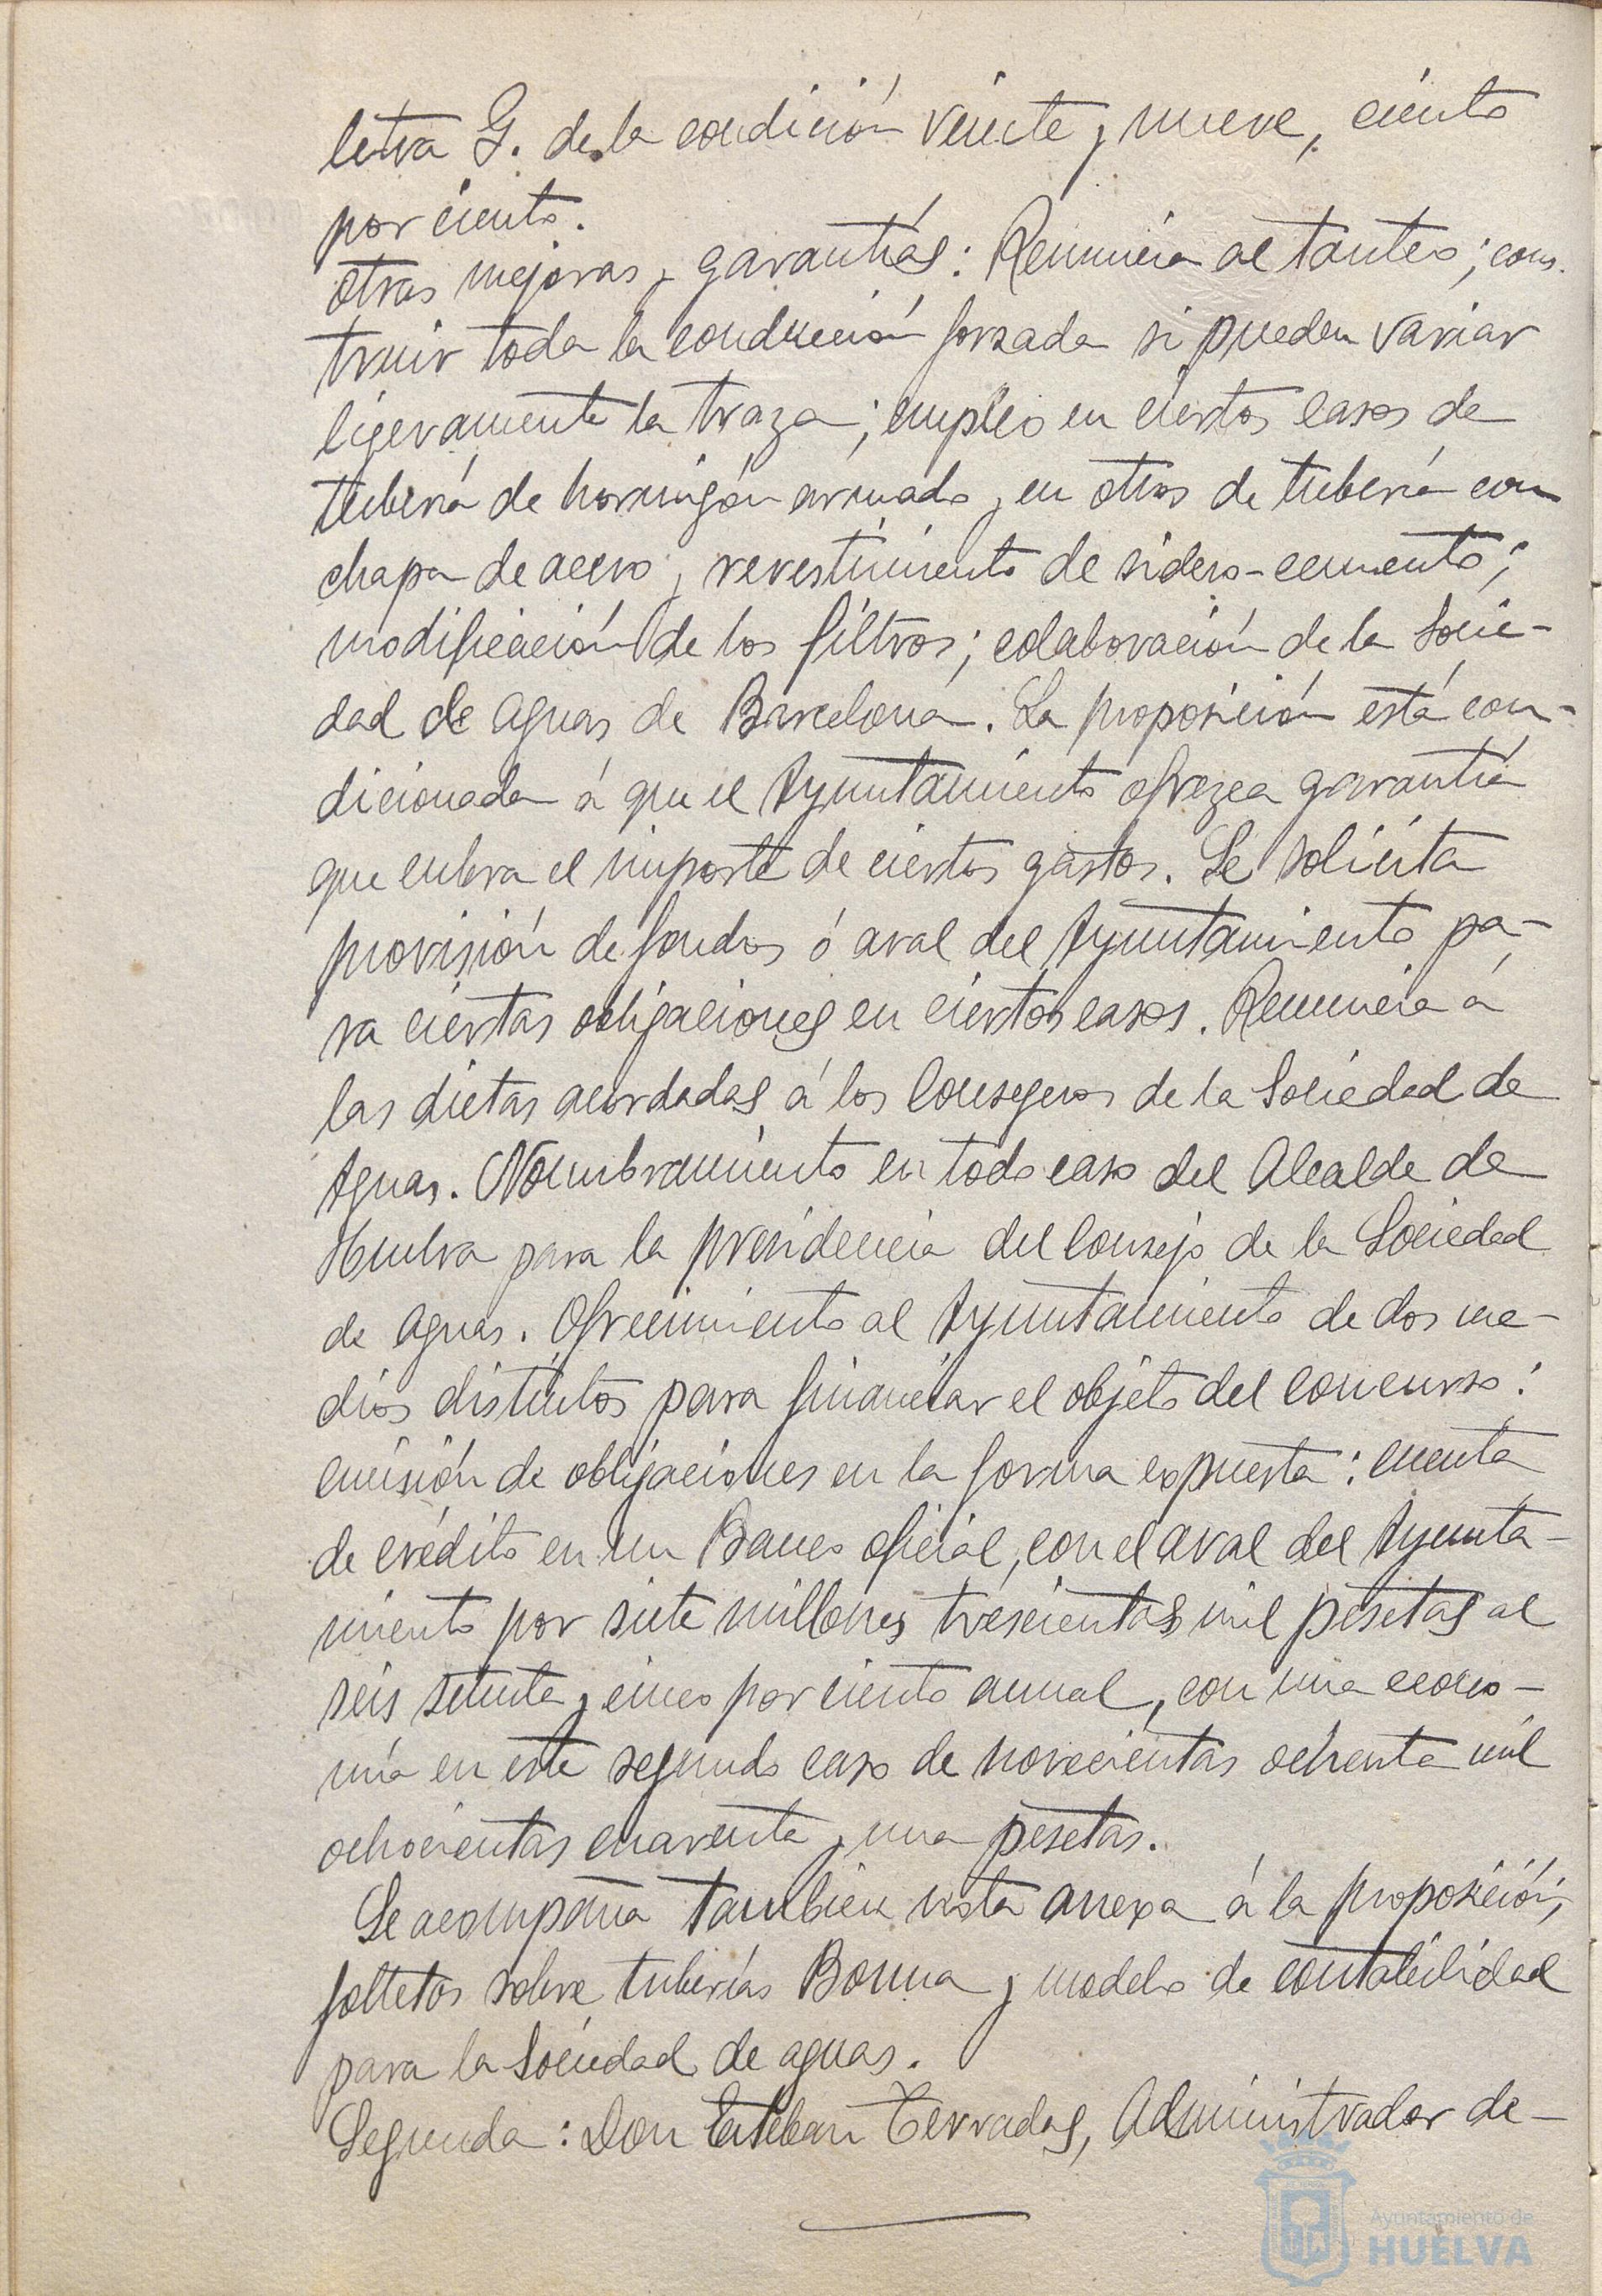 letra G. de la condición veinte y nueve, ciento
por ciento.
otras mejoras y garantías: Renuncia al tanteo; cons-
truir toda la conducción forzada si pueden variar
ligeramente la traza; empleo en ciertos casos de
tubería de hormigón armado y en otros de tubería con
chapa de acero y revestimiento de sidero-cemento;
modificación de los filtros; colaboración de la Socie-
dad de aguas de Barcelona. La proposición está con-
dicionada á que el Ayuntamiento ofrezca garantía
que cubra el importe de ciertos gastos. Se solicita
provisión de fondos ó aval del Ayuntamiento pa-
ra ciertas obligaciones en ciertos casos. Renuncia á
las dietas acordadas á los Consejeros de la Sociedad de
Aguas. Nombramiento en todo caso del Alcalde de
Huelva para la presidencia del Consejo de la Sociedad
de aguas. Ofrecimiento al Ayuntamiento de dos me-
dios distintos para financiar el objeto del concurso:
emisión de obligaciones en la forma expuesta: cuenta
de crédito en un Banco oficial, con el aval del Ayunta-
miento por siete millones trescientas mil pesetas al
seis setenta y cinco por ciento anual, con una econo-
mía en este segundo caso de novecientas ochenta mil
ochocientas cuarenta y una pesetas.
Se acompaña tambien nota anexa á la proposición,
folletos sobre tuberías Bonna y modelo de contabilidad
para la Sociedad de aguas.
Segunda: Don Esteban Terradas, Administrador de-
Ayuntamiento de
HUELVA